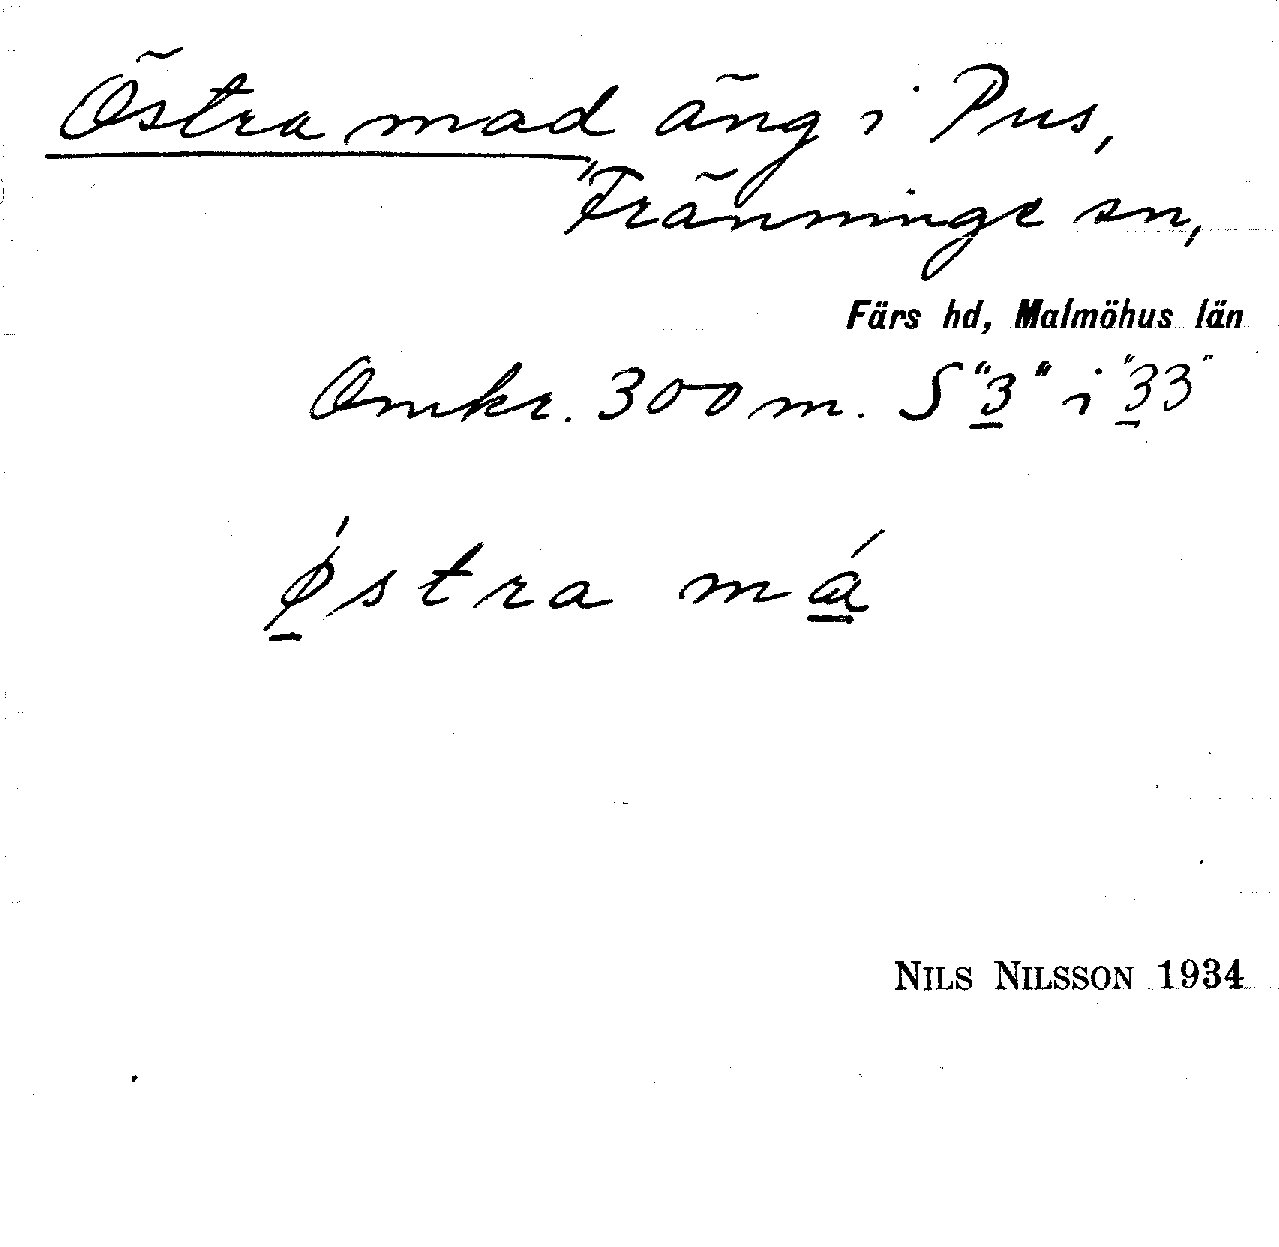 Östra mad äng i Pus,
Fränninge sn,
Färs hd, Malmöhus län
Omkr. 300 m. S "3" i "33"
ǿstra má
NILS NILSSON 1934